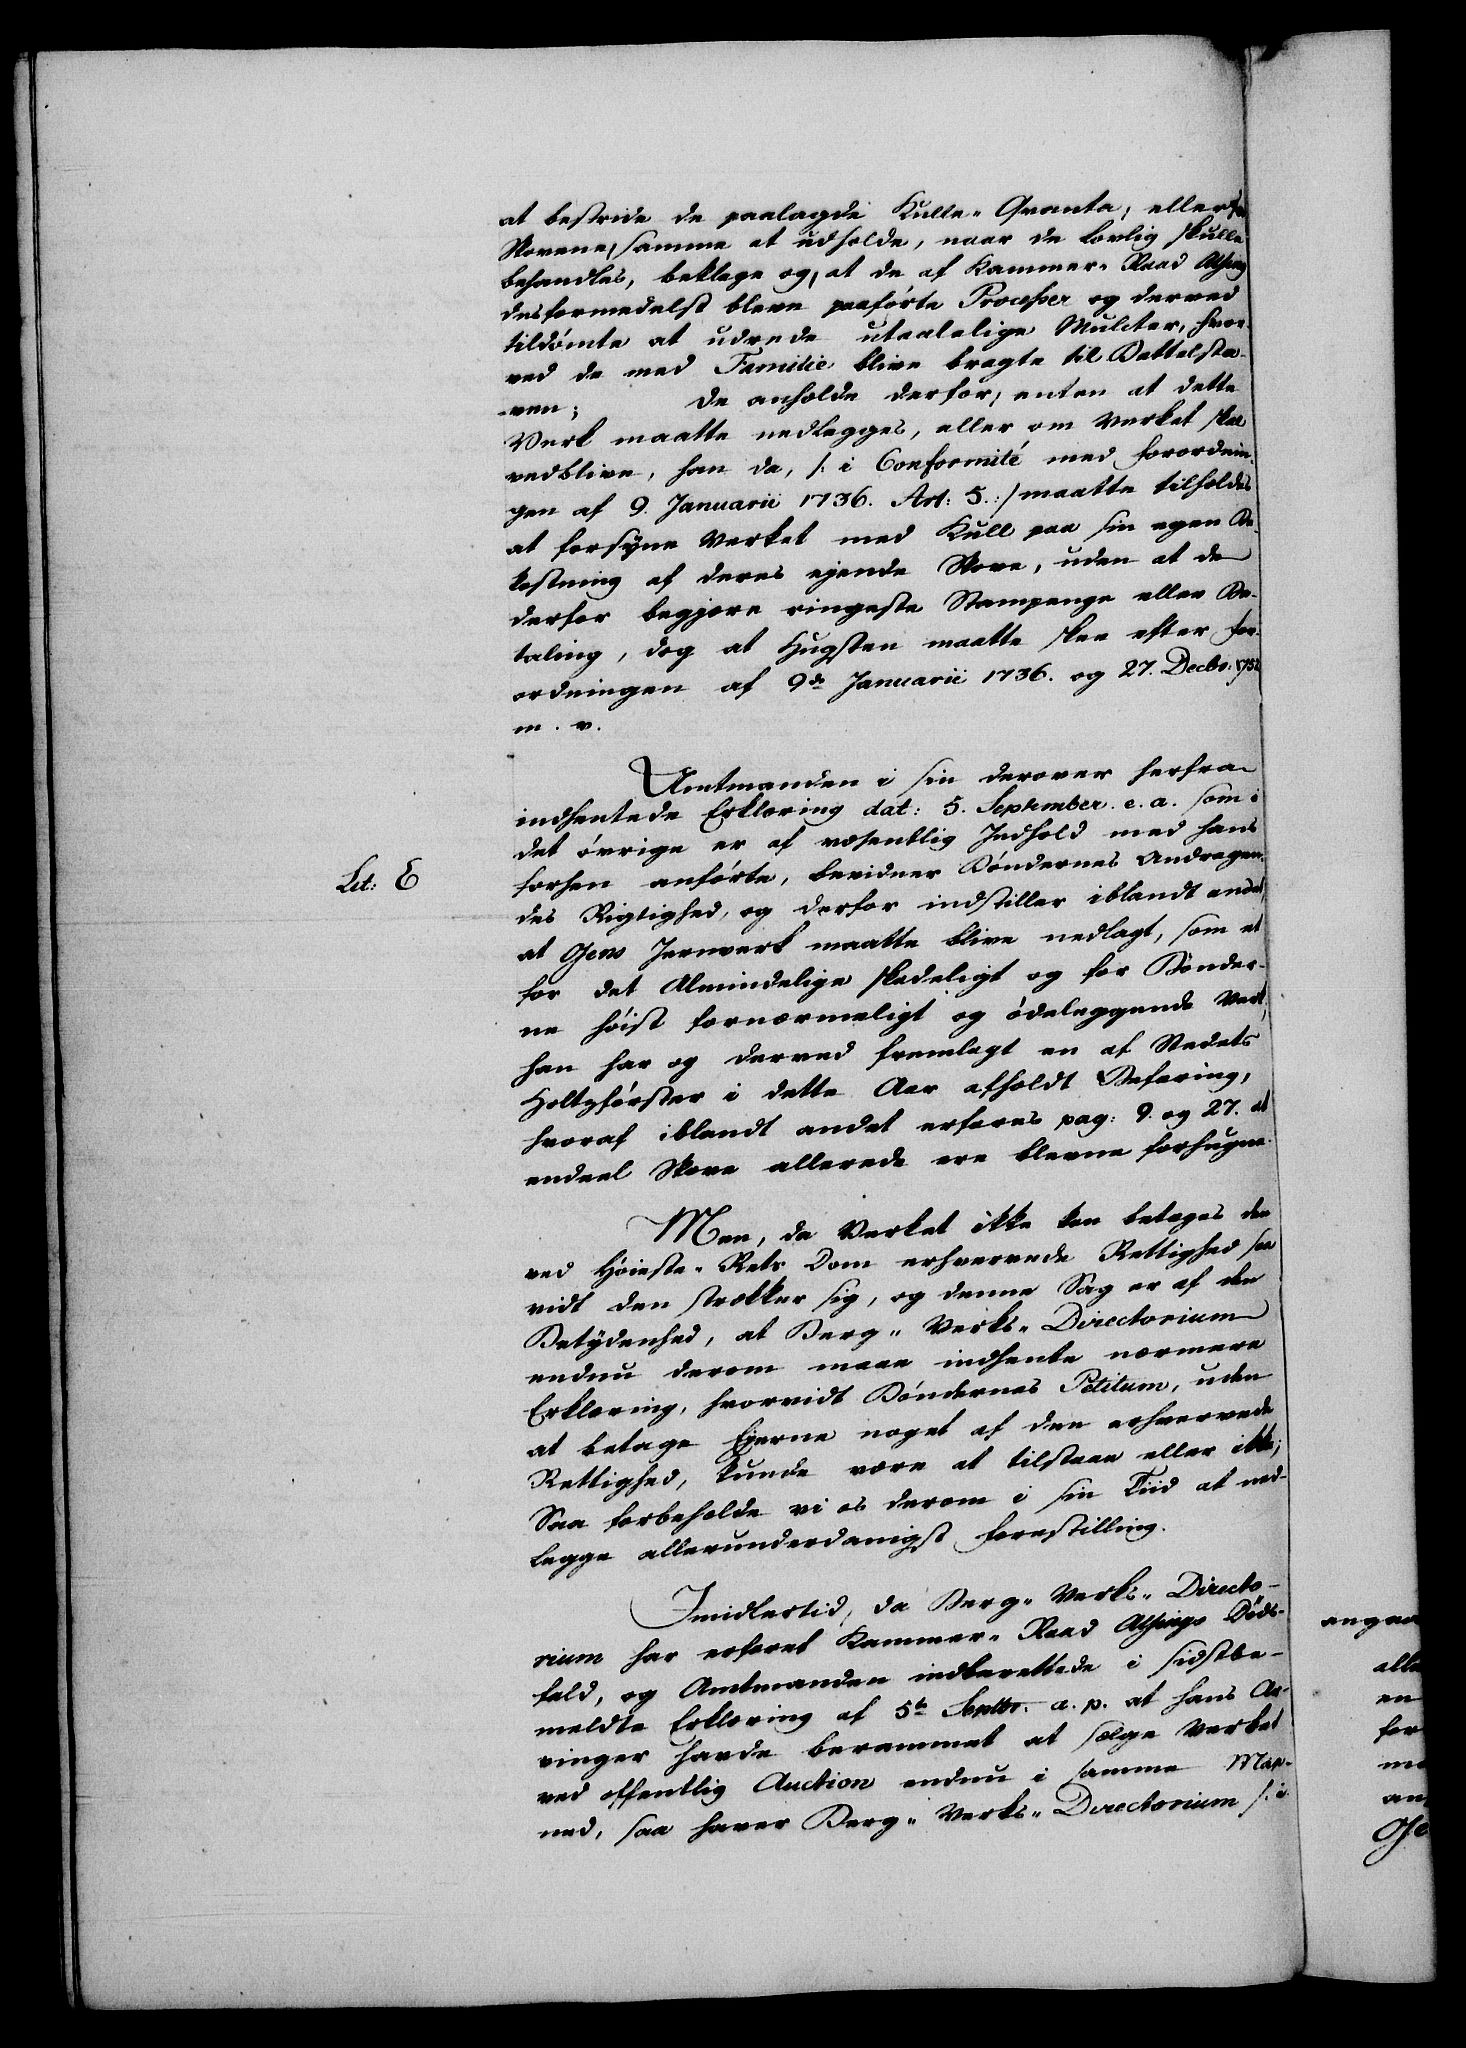 at bestride de paalagde Kulle-Qvanta, eller
Skovene, samme at udholde, naar de lovlig skulle
behandles, beklage og, at de af Kammer-Raad
desformedelst bleve paaførte Processer og derved
tildømte at udrede utaalelige Mulcter, hvor-
ved de med Familie blive bragte til Bettelsta-
ven; De anholde derfor, enten at dette
Verk maatte nedlegges, eller om Verket skal
vedblive, han da, /: i Conformité med Forordnin-
gen af 9. Januarii 1736. Art: 5. :/ maatte tilholdes
at forsyne Verket med Kull paa sin egen Be-
kostning af deres ejende Skove, uden at de
derfor begjere ringeste Stampenge eller Be-
taling, dog at Hugsten maatte skee efter For-
ordningen af 9de Januarii 1736. og 27. Decbr:
m. v.
Amtmanden i sin derover herfra
indhentede Erklæring dat: 5. September. e. a. som i
det øvrige er af væsentlig Indhold med hans
Lit: E
forhen anførte, bevidner Bøndernes Andragen-
des Rigtighed, og derfor indstiller iblandt andet,
at Oens Jernverk maatte blive nedlagt, som et
for det Almindelige skadeligt og for Bønder-
ne høist fornærmeligt og ødeleggende Verk,
han har og derved fremlagt en af Stedets
Holtzførster i dette Aar afholdt Befaring,
hvoraf iblandt andet erfares pag: 9. og 27. at
endeel Skove allerede ere blevne forhugne.
Men, da Verket ikke kan betages den
ved Høieste-Rets Dom erhvervede Rettighed saa
vidt den strækker sig, og denne Sag er af den
Betydenhed, at Berg-Verks-Directorium
endnu derom maae indhente nærmere
Erklæring, hvorvidt Bøndernes Petitum, uden
at betage Eierne noget af den erhvervede
Rettighed, kunde være at tilstaae eller ikke;
Saa forbeholde vi os derom i sin Tiid at ned-
legge allerunderdanigst Forestilling.
Imidlertid, da Berg-Verks-Directo-
rium har erfaret Kammer-Raad Døds-
fald, og Amtmanden indberettede i sidstbe-
meldte Erklæring af 5te Septbr. a. p. at hans Ar-
vinger havde berammet at sælge Verket
ved offentlig Auction endnu i samme Maa-
ned, saa haver Berg-Verks-Directorium /: i
alle
en
for